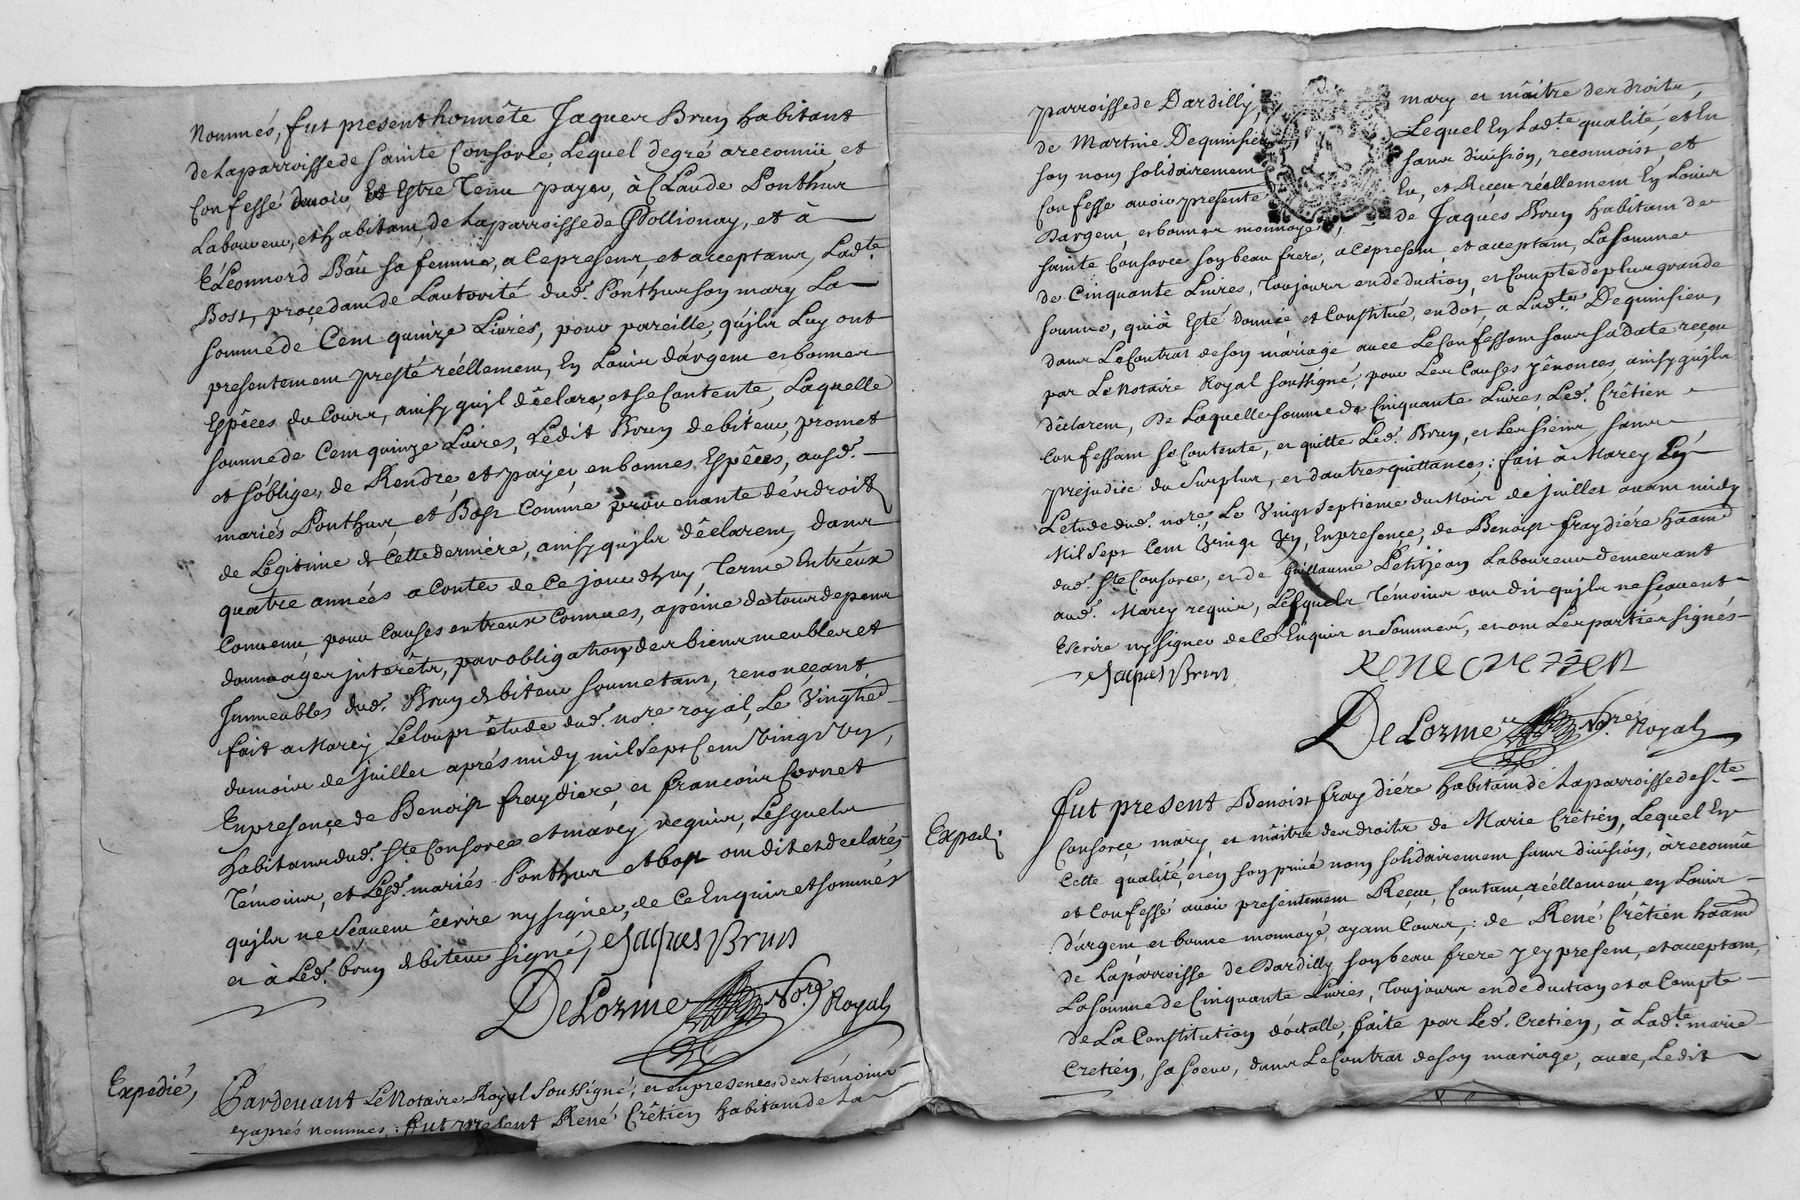 Nommés, fut present honnête Jaques Brun habitant
de Laparroissede sainte Consorce, Lequel degré a reconnü et
Confessé devoir Et Estre Tenu payer, à Claude Ponthus
Laboureur, et habitant de Laparroissede Pollionay, et à
Eléonnord Bâu sa femme, a Ce presens, et acceptans, Lad.te
Bost, procedant de Lautorité dud. Ponthus son mary La
somme de Cent quinze Livres, pour pareille, qu'jls Luy ont
presentement presté réellement, En Louis d'argent et bonnes
Espêces du Cours, ainsy qu'jl dêclare, et se Contente, Laquelle
somme de Cent quinze Livres, Ledit Brun debiteur, promet
et s'oblige, de Rendre, et payer, en bonnes Espêces, ausd.
mariés Ponthus, et Bost Comme provenante des droits
de Légitime de Cette derniére, ainsy qu'jls dêclarent, dans
quatre années a Conter de Ce jourd'huy, Terme Entr'eux
Convenu, pour Causes entreux Connues, a peine de tous depens
dommages jnterêts, par obligation, de ses biens meubles et
Jmmeubles dud. Brun debiteur soumetans, renonçeant,
fait a Marcy Leloup êtude dud. no.re royal, Le Vingt Sed
du mois de juillet aprés midy mil Sept Cent Vingt Un,
En presençe de Benoist fraydiére, et françois Cornet
habitans dud. S.te Consorce et marcy requis, Lesquels
Témoins, et Lesd. mariés Ponthus et bost ont dit et declarés
qu'jls ne Sçavent êcrire ny signer, de Ce Enquis et sommés
et à Led. brun debiteur signé, Jaques Brun
DeLorme No.re Royal
Expedié,
Pardevant Le Notaire Royal Soussigné, et en presences des témoins
cy aprés nommés, : fut present René Crêtien habitant de La
parroissede Dardilly, mary et mâitre des droits,
de Martine Dequinsieu, Lequel En Lad.te qualité, et En
son nom solidairement sans division, reconnoist, et
Confesse avoir presente En, et Reçeu réellement En Louis
Dargent, et bonnes monnoyes, de Jaques Brun habitant de
sainte Consorce son beau frere, a Ce present, et acceptant, La somme
de Cinquante Livres, Toujours en deduction, et Compte de plus grande
somme, qui à Esté donnée, et Constitué, en dot, a Lad.te Dequinsieu,
dans LeContrat de son mariage avec Le Confessant sous sa date reçeu
par Le Notaire Royal soussigné, pour Les Causes y ênoncés, ainsy qu'jls
dêclarent, De Laquelle somme de Cinquante Livres, Led. Crêtien
Confessant se Contente, et quitte Led. Brun, et Les siens, sans
prejudice du Surplus, et d'autres quittances, : fait à Marcy Ley
Letude dud. no.re, Le Vingt Septieme du Mois de juillet avant midy
Mil Sept Cent Vingt Un, En presençe, de Benoist fraydiére haant
dud. S.te Consorce, et de Guillaume Petitjean Laboureur demeurant
aud. Marcy requis, Lesquels Témoins ont dit qu'jls ne Sçavent
Escrire ny signer de Ce Enquis et Sommés, et ont Les parties signés
Jaques Brun RENE CRETIEN
DeLorme No.re Royal
Exped.
fut present Benoist fraydiére habitant de Laparroissede S.te
Consorçe mary, et mâitre des droits de Marie Crêtien, Lequel En
Cette qualité, et en son privé nom solidairement sans division, à reconnû
et Confessé avoir presentement Reçeu, Contant, réellement, en Louis
d'argent et bonne monnoye, ayant Cours, : de René Crêtien haant
de Laparroisse de Dardilly son beau frére y cy present, et acceptant,
La somme de Cinquante Livres, Toujours en deduction et a Compte
de La Constitution dotalle, faite par Led. Cretien, à Lad.te marie
Cretien, sa soeur, dans LeContrat de son mariage, avec, Ledit